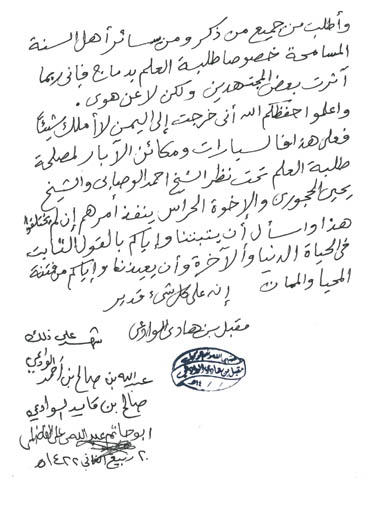 وأطلب من جميع من ذكر ومن سائر أهل السنة
المسامحة خصوصا طلبة العلم بدماج فإني ربما
آثرت بعض المجتهدين ولكن لا عن هوى.
واعلموا حفظكم الله أني خرجت إلى اليمن لا أملك شيئاً
فعلى هذا فالسيارات ومكائن الآبار لمصلحة
طلبة العلم تحت نظر الشيخ أحمد الوصابي والشيخ
يحيى الحجوري والإخوة الحراس ينفذ أمرهم إن لم يختلفوا
هذا وأسأل أن يثبتنا وإياكم بالقول الثابت
في الحياة الدنيا والآخرة وأن يعيذنا وإياكم من فتنة
المحيا والممات إنه على كل شيء قدير
مقبل بن هادي الوادعي
شهد على ذلك
عبد الله بن صالح بن أحمد الوادعي
صالح بن قايد الوادعي
أبو حاتم عبد الله بن علي الفاضلي
٢٠ ربيع الثاني ١٤٢٢هـ